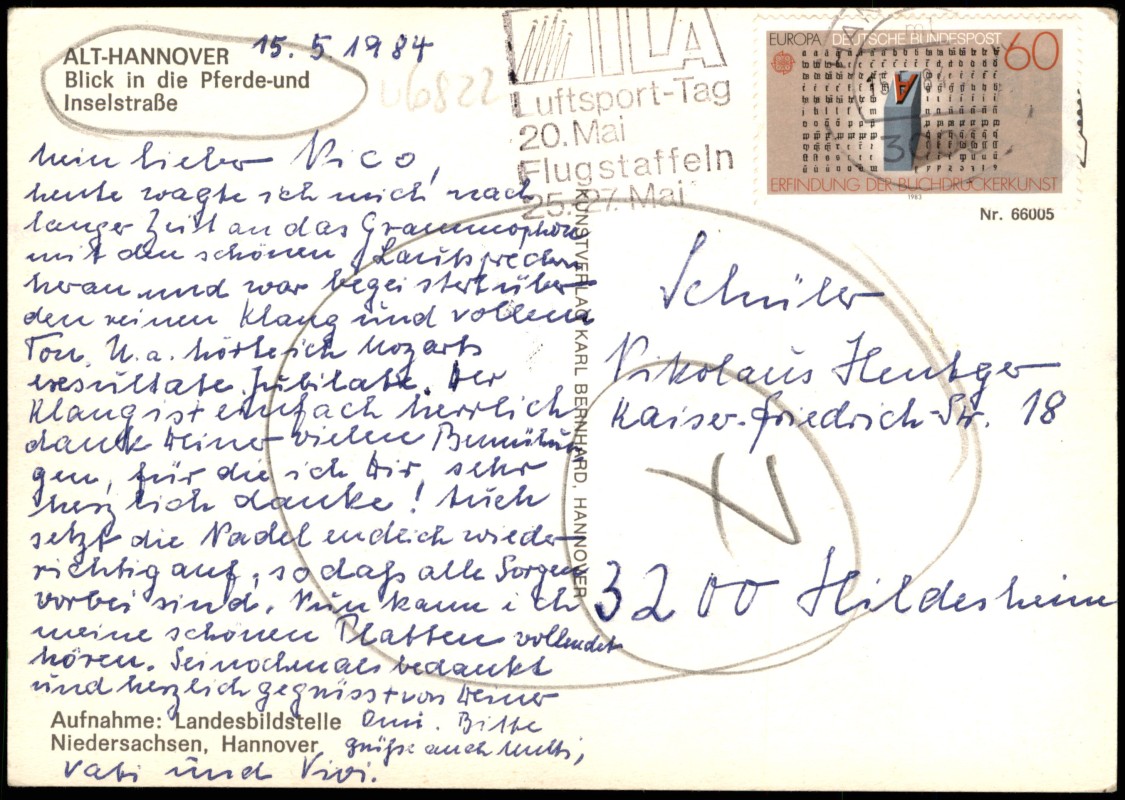 ALT-HANNOVER
Blick in die Pferde-und
Inselstraße
15.5.1984
U6822
ILA
Luftsport-Tag
20. Mai
Flugstaffeln
25.-27. Mai
EUROPA DEUTSCHE BUNDESPOST 60
ERFINDUNG DER BUCHDRUCKERKUNST
1983
Nr. 66005
Mein lieber Nico,
heute wagte ich mich nach
langer Zeit an das Grammophon
mit den schönen Lautsprechern
heran und war begeistert über
den reinen Klang und vollem
Ton. U.a. hörte ich Mozarts
exesultate Jubilate. Der
Klang ist einfach herrlich
dank Deiner vielen Bemühun
gen, für die ich Dir, sehr
herzlich danke! Auch
setzt die Nadel endlich wieder
richtig auf, so daß alle Sorgen
vorbei sind. Nun kann ich
meine schönen Platten vollendet
hören. Sei nochmals bedankt
und herzlich gegrüsst von Deiner
Omi. Bitte
grüße auch Mutti,
Vati und Vivi.
Aufnahme: Landesbildstelle
Niedersachsen, Hannover
KUNSTVERLAG KARL BERNHARD, HANNOVER
Schüler
Nikolaus Hentger
Kaiser-Friedrich-Str. 18
3200 Hildesheim